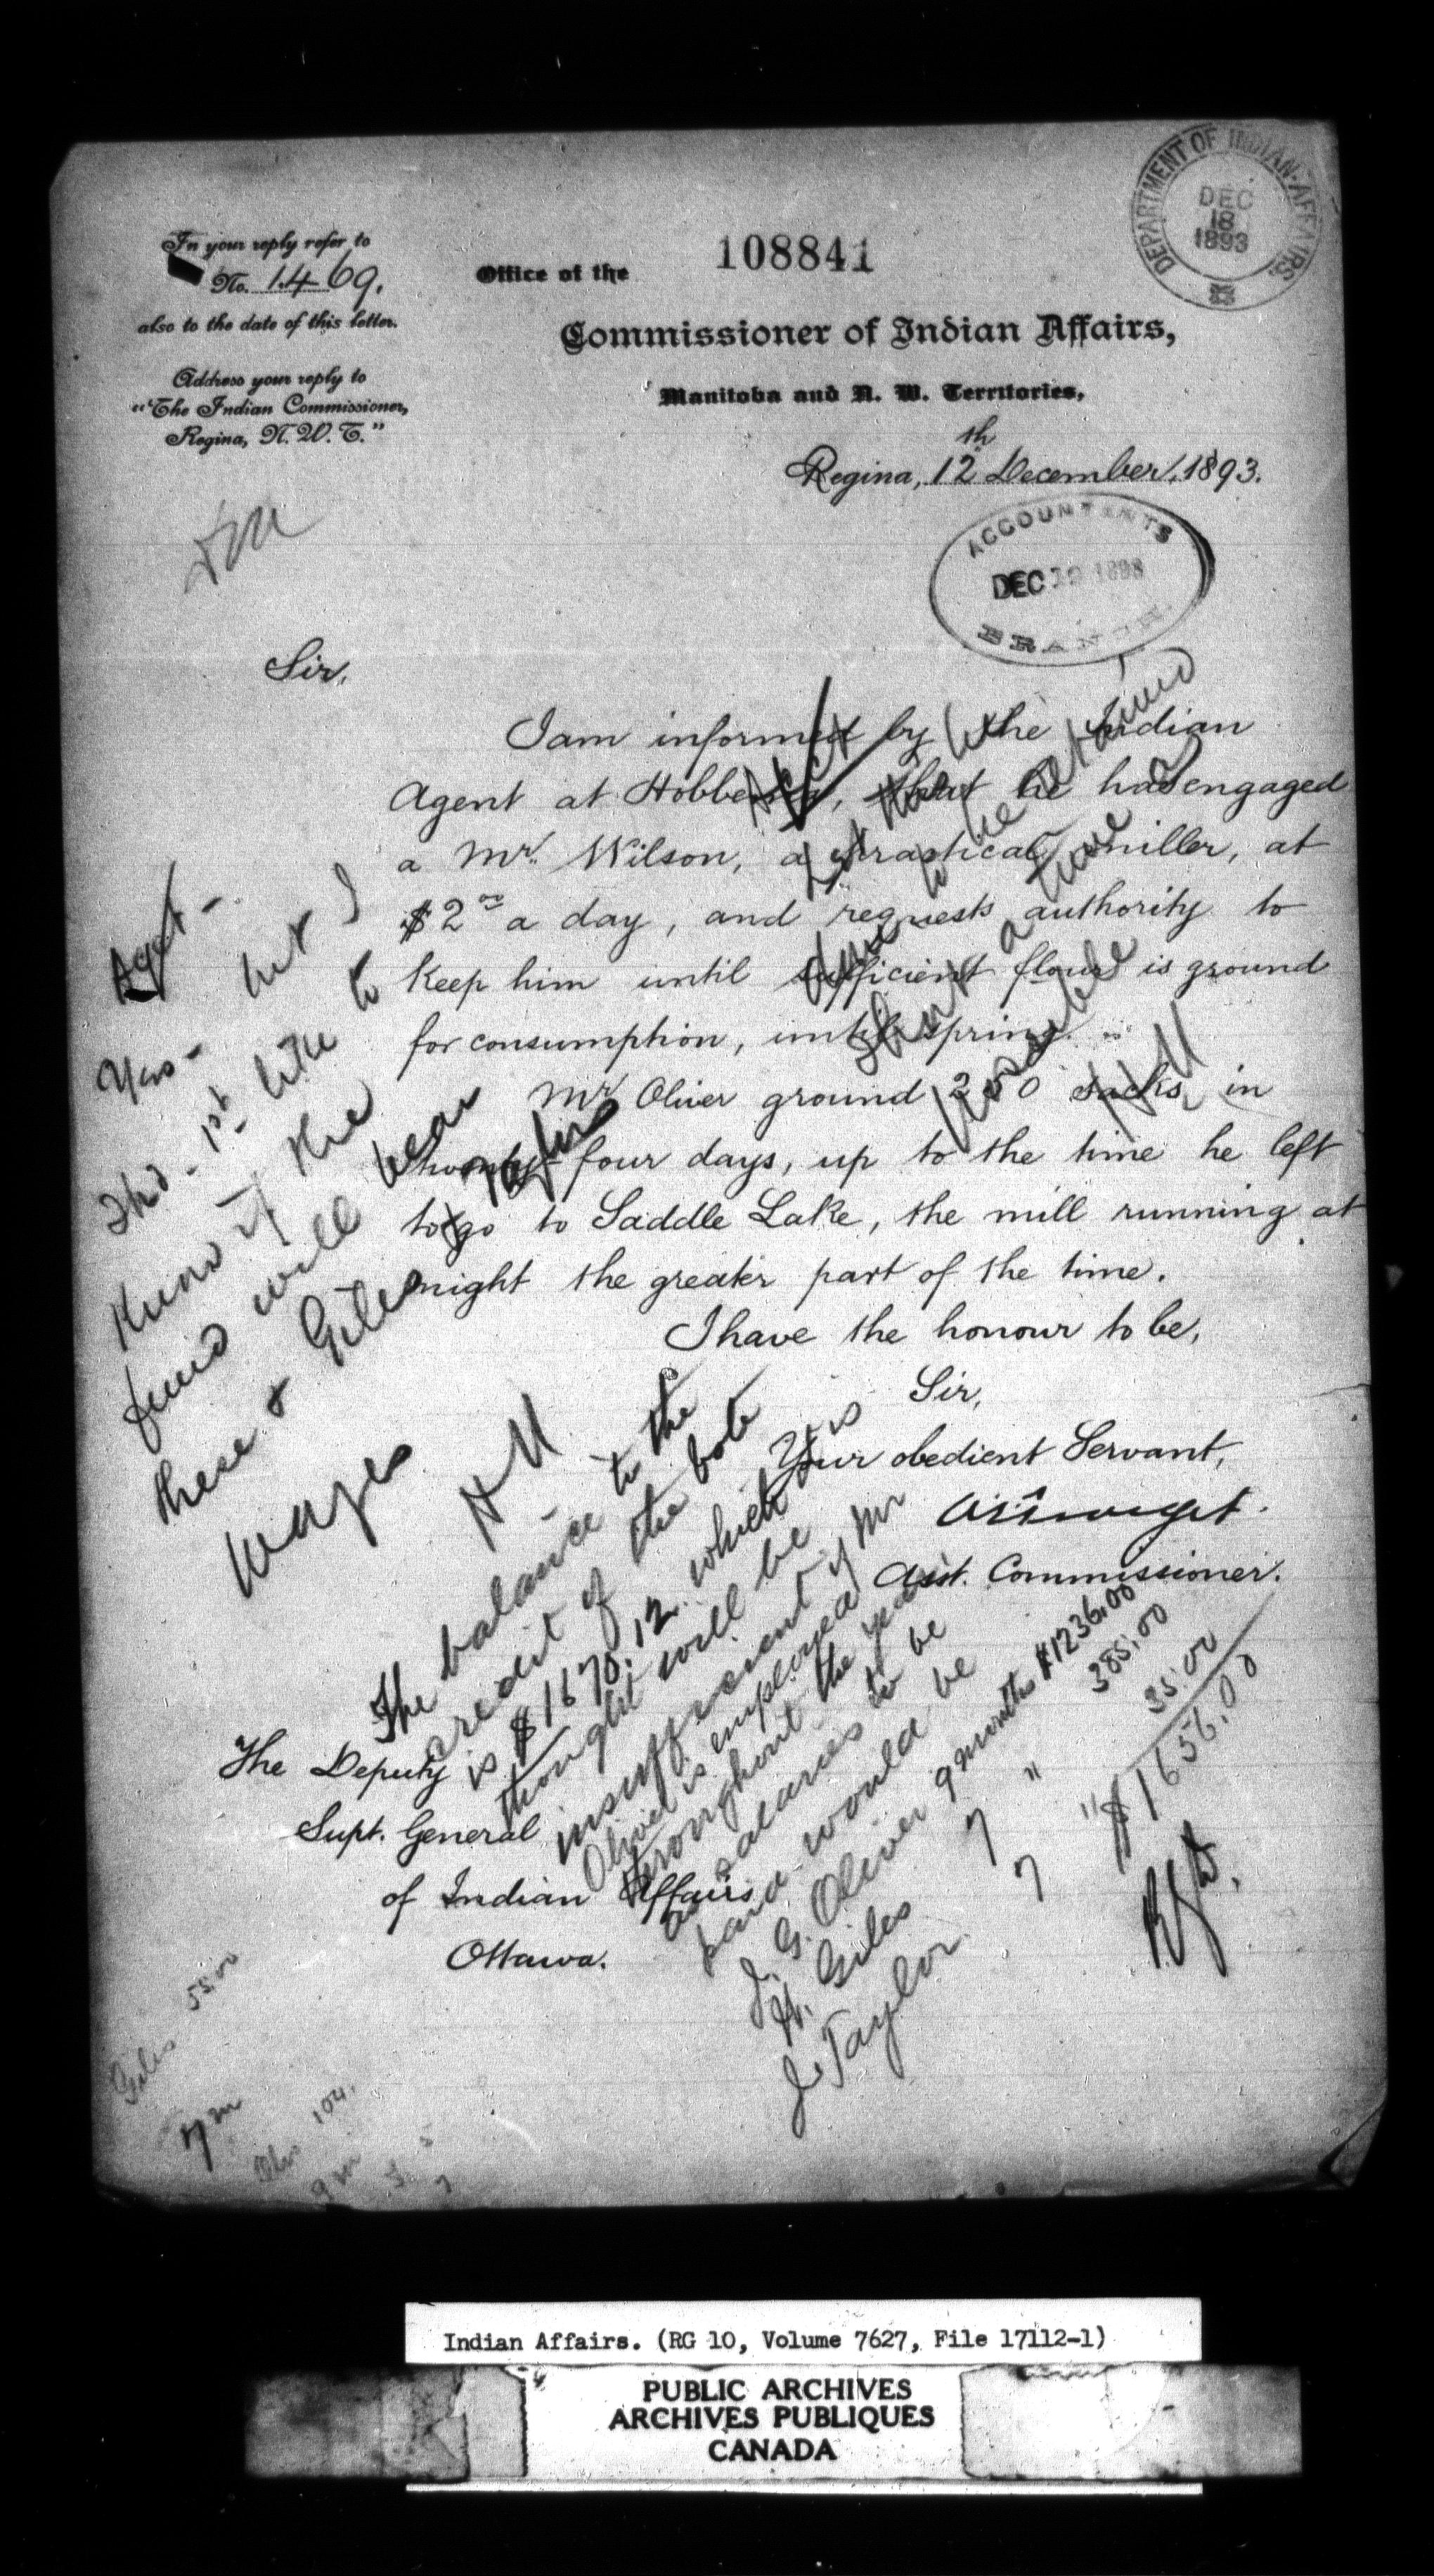 In your reply refer to
No. 1469.
also to the date of this letter.
Address your reply to
"The Indian Commissioner,
Regina, N. W. T."
108841
DEPARTMENT OF INDIAN AFFAIRS.
DEC
18
1893
Office of the
Commissioner of Indian Affairs,
Manitoba and N. W. Territories,
Regina, 12th December, 1893.
ACCOUNTANTS
DEC 1893
BRANCH
Sir,
I am informed by the Indian
Agent at Hobbema, that he has engaged
a Mr. Wilson, a practical miller, at
$2 00 a day, and requests authority to
Keep him until sufficient flour is ground
for consumption, until spring.
Mr Oliver ground 250 sacks in
twenty-four days, up to the time he left
to go to Saddle Lake, the mill running at
night the greater part of the time.
I have the honour to be,
Sir,
Your obedient Servant,
Asst. Commissioner.
The Deputy
Supt. General
of Indian Affairs
Ottawa.
Yes - but I
shd. 1st like to
know if the
fund will bear
these & Giles
wages
The balance to the
credit of the vote
is $1670.12 which it is
thought will be
insufficient if Mr
Oliver is employed
throughout the year
as salaries to be
paid would be
J. G. Oliver 9 months $1236.00
H. Giles 7 " 385.00
J. Taylor 7 " 35.00
$1656.00
Giles 55.00
7 m
104.
9 m
Indian Affairs. (RG 10, Volume 7627, File 17112-1)
PUBLIC ARCHIVES
ARCHIVES PUBLIQUES
CANADA